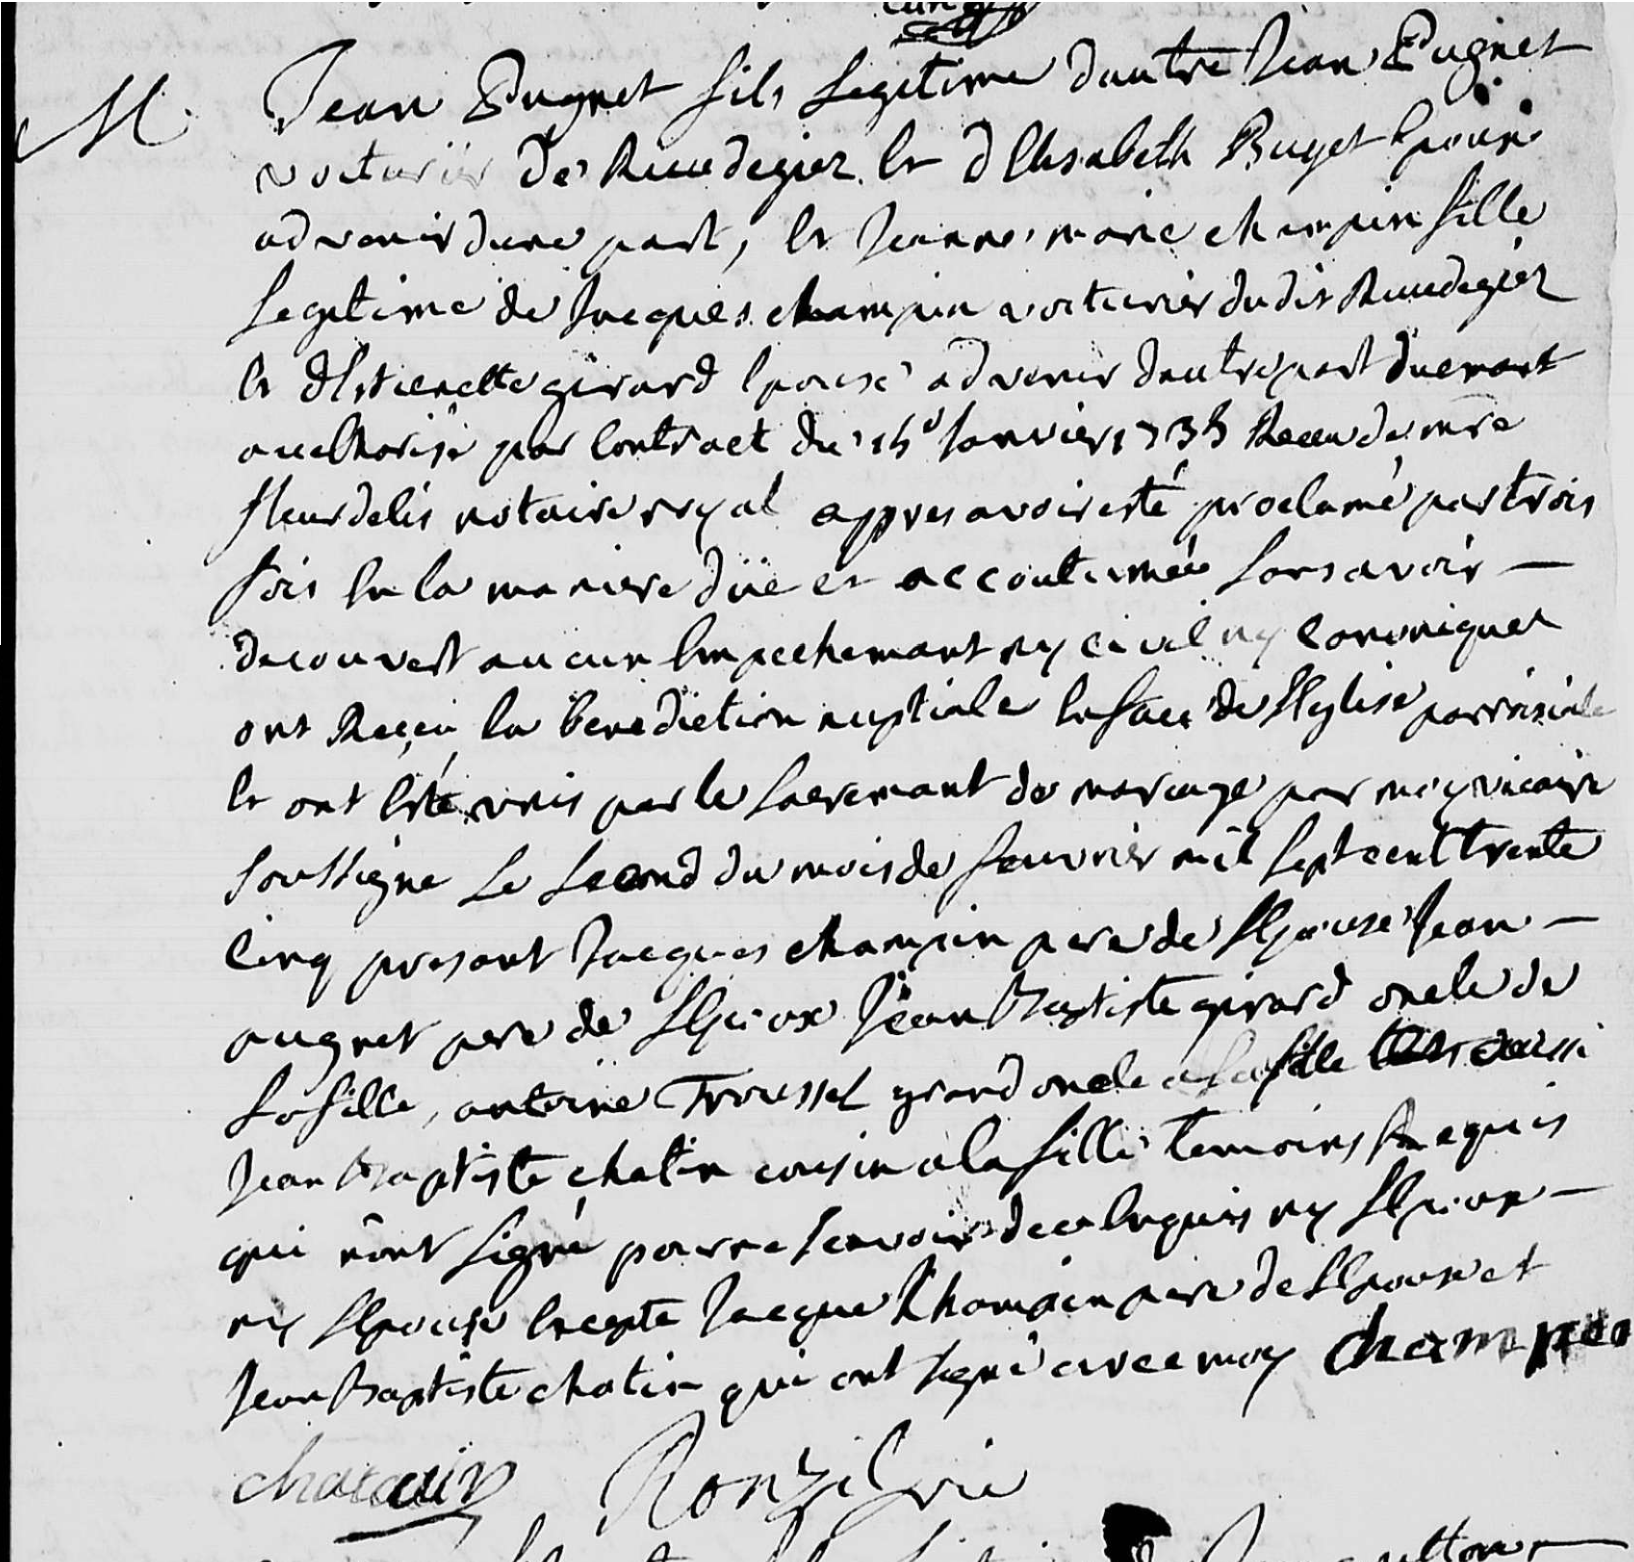 curé
M. Jean Pugnet fils legitime dautre Jean Pugnet
voiturier de Rivedegier et dElisabeth Buget Epoux
advenir dune part, et Jeanne marie champin fille
Legitime de Jacques champin voiturier dudit Rivedegier
et dEstienette girard Epouse advenir dautre part duemant
aucthorisé par Contract du 15e Janvier 1735 Receu de mre
fleurdelis notaire royal appres avoir esté proclamé par trois
fois En la maniere düe et accoutumée Sans avoir —
decouvert aucun Empechemant ny civil ny Canonique
ont Reçeu la benediction nuptiale En face de lEglise parroisiale
Et ont Esté unis par le Sacremant de mariage par moy vicaire
Soussigne Le Second du mois de feuvrier mil Sept cent trente
Cinq presant Jacques champin pere de lEpouse Jean —
pugnet pere de lEpoux Jean Baptiste girard oncle de
La fille, antoine Troussel grand oncle a La fille aussi
Jean Baptiste chatin cousin a la fille temoins Requis
qui n'ont Signé pour ne scavoir de ce Enquis ny lEpoux —
ny lEpouse Excepte Jacque Champin pere de lEpouse et
Jean Baptiste chatin qui ont signé avec moy champin
chatain Ronzil vic